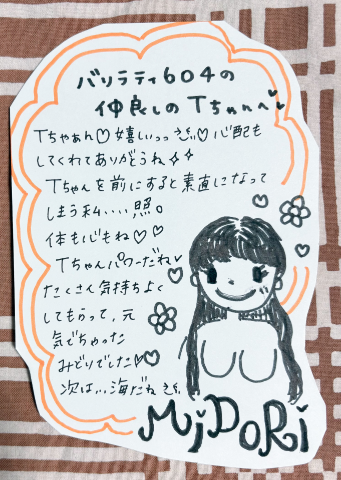 バリラティ604の
仲良しのTちゃんへ♥
Tちゃぁん♡嬉しいっっ♡心配も
してくれてありがとうね✧✧
Tちゃんを前にすると素直になって
しまう私・・・・照。
体も心もね♡♡
Tちゃんパワーだね♥
たくさん気持ちよく
してもらって、元
気でちゃった
みどりでした♡♡
次は…海だね
MiDORi